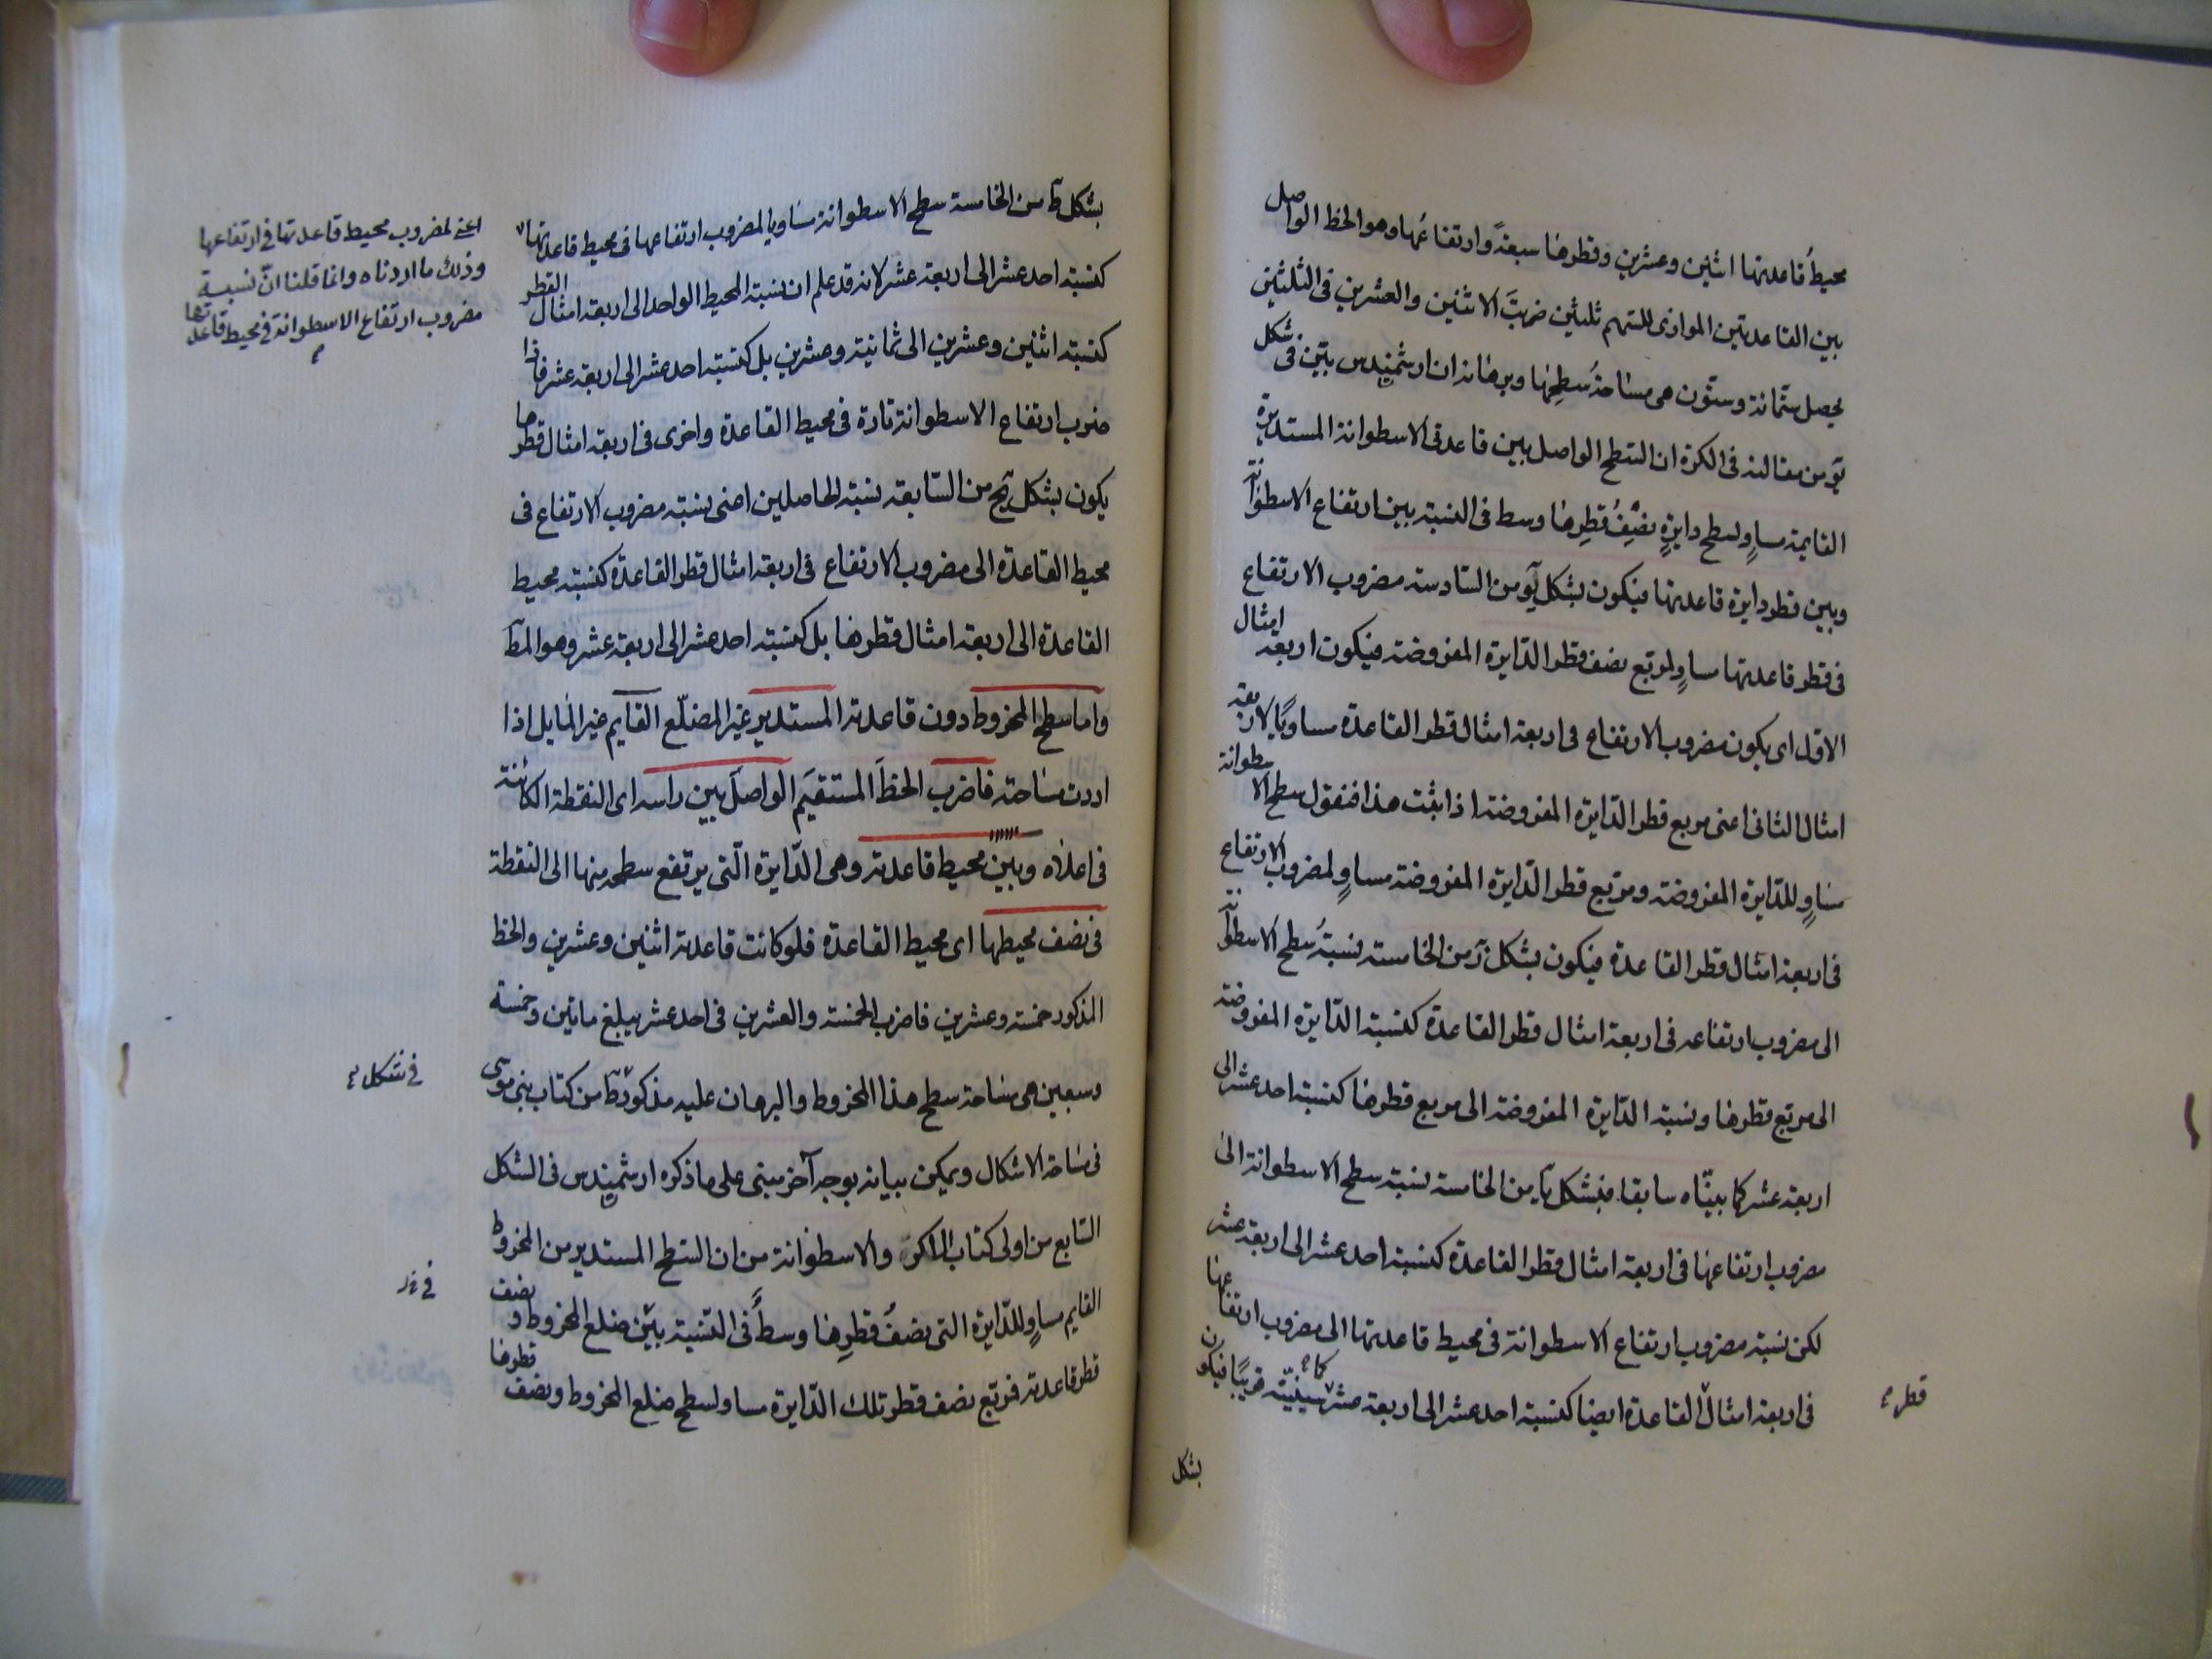 محيطُ قاعدتها اثنين وعشرين وقطرها سبعةً وارتفاعُها وهو الخط الواصل
بين القاعدتين الموازى للسهم ثلثين ضربتَ الاثنين والعشرين فى الثلثين
يحصل ستمائة وستّون هى مساحةُ سطحِها وبرهانه ان ارشميدس بيّن فى شكل
يو من مقالته فى الكرة ان السّطح الواصل بين قاعدتى الاسطوانة المستديرة
القايمة مساوٍ لسطح دايرةٍ نصفُ قطرِها وسط فى النسبة بين ارتفاع الاسطوانة
وبين قطر دايرة قاعدتها فيكون بشكل يو من السّادسة مضروب الارتفاع
فى قطر قاعدتها مساوٍ لمربّع نصف قطر الدّايرة المفروضة فيكون اربعة امثال
الاوّل اى يكون مضروب الارتفاع فى اربعة امثال قطر القاعدة مساويًا لاربعة
امثال الثانى اعنى مربع قطر الدّايرة المفروضة اذا ثبت هذا فنقول سطح الاسطوانة
مساوٍ للدّايرة المفروضة ومربّع قطر الدّايرة المفروضة مساوٍ لمضروب الارتفاع
فى اربعة امثال قطر القاعدة فيكون بشكل ز من الخامسة نسبةُ سطح الاسطوانة
الى مضروب ارتفاعه فى اربعة امثال قطر القاعدة كنسبة الدّايرة المفروضة
الى مربّع قطرها ونسبة الدّايرة المفروضة الى مربع قطرها كنسبة احد عشر الى
اربعة عشر كما بيّنّاه سابقا فبشكل يا من الخامسة نسبة سطح الاسطوانة الى
مضروب ارتفاعها فى اربعة امثال قطر القاعدة كنسبة احد عشر الى اربعة عشر
لكن نسبة مضروب ارتفاع الاسطوانة فى محيط قاعدتها الى مضروب ارتفاعها
فى اربعة امثال القاعدة ايضا كنسبة احد عشر الى اربعة عشر كما سنبيّنه قريبًا فيكون
قطر
بشكل
بشكل ط من الخامسة سطح الاسطوانة مساويا لمضروب ارتفاعها فى محيط قاعدتها
كنسبة احد عشر الى اربعة عشر لانه قد علم ان نسبة المحيط الواحد الى اربعة امثال القطر
كنسبة اثنين وعشرين الى ثمانية وعشرين بل كنسبة احد عشر الى اربعة عشر فاذا
ضرب ارتفاع الاسطوانة تارة فى محيط القاعدة واخرى فى اربعة امثال قطرها
يكون بشكل يح من السّابعة نسبة الحاصلين اعنى نسبة مضروب الارتفاع فى
محيط القاعدة الى مضروب الارتفاع فى اربعة امثال قطر القاعدة كنسبة محيط
القاعدة الى اربعة امثال قطرها بل كنسبة احد عشر الى اربعة عشر وهو المط
واما سطح المخروط دون قاعدته المستدير غير المضلّع القايم غير المايل اذا
اردت مساحته فاضرب الخطَ المستقيَم الواصلَ بين راسه اى النقطة الكائنة
فى اعلاه وبين محيط قاعدته وهى الدّايرة الّتى يرتفع سطحه منها الى النقطة
فى نصف محيطها اى محيط القاعدة فلو كانت قاعدته اثنين وعشرين والخط
المذكور خمسة وعشرين فاضرب الخمسة والعشرين فى احد عشر يبلغ مايتين وخمسة
وسبعين هى مساحة سطح هذا المخروط والبرهان عليه مذكور ط من كتاب بنى موسى
فى مساحة الاشكال ويمكن بيانه بوجه آخر مبنى على ما ذكره ارشميدس فى الشكل
السّابع من اولى كتاب الاكر والاسطوانة من ان السّطح المستدير من المخروط
القايم مساوٍ للدّايرة التى نصفُ قطرِها وسطٌ فى النّسبة بيْن ضلع المخروط و نصف
قطر قاعدته فمربّع نصف قطر تلك الدّايرة مساو لسطح ضلع المخروط ونصف قطرها
اعنى لمضروب محيط قاعدتها فى ارتفاعها
وذلك ما اردناه وانما قلنا انّ نسبة
مضروب ارتفاع الاسطوانة فى محيط قاعدتها
فى شكل